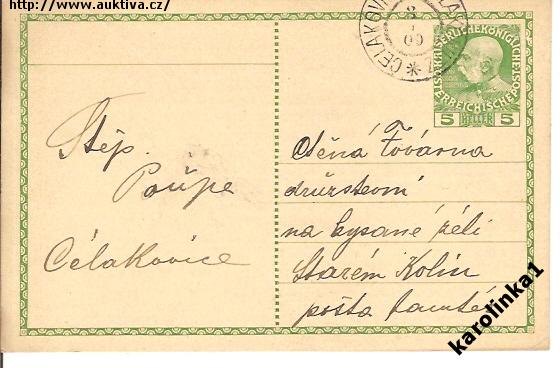 http://www.auktiva.cz/
ČELAKOV
09
KAISERLICHEKÖNIGLICHE
ÖSTERREICHISCHEPOST
5 HELLER 5
Štěp.
Poupe
Čélakovice
Ctěná Továrna
družstevní
na kysané zélí
Starém Kolín
pošta tamtéž
karolinka1